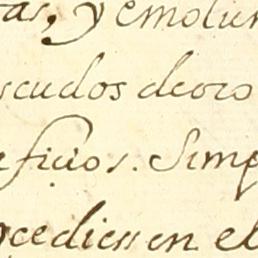 tas, y emolum
scudos de oro
eficios. Simp
cedieren en el